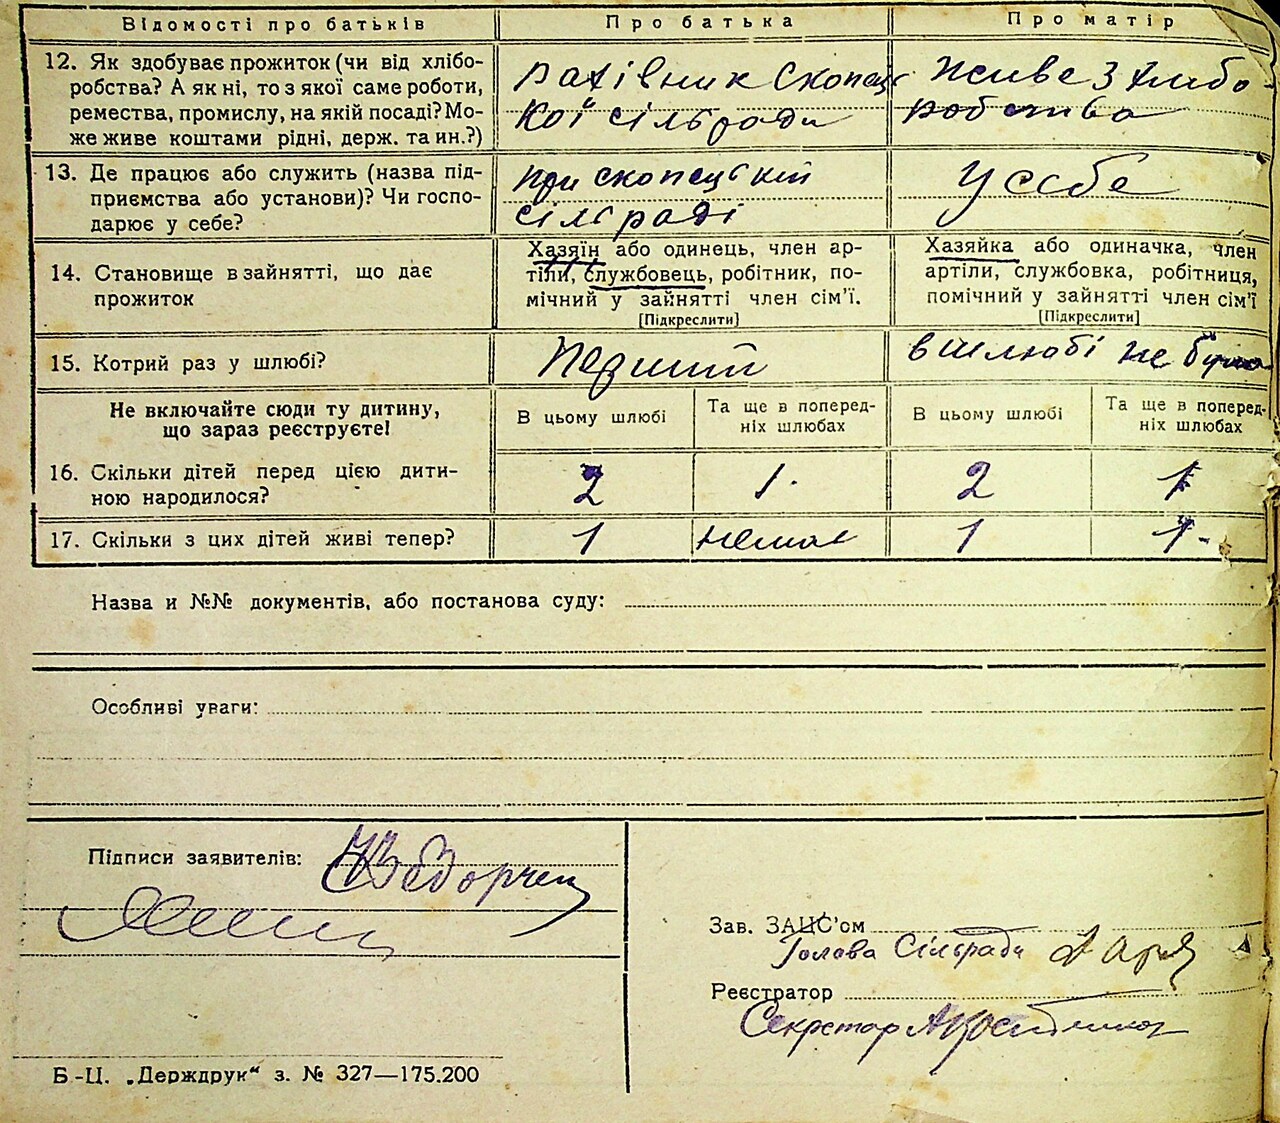 Відомості про батьків
Про батька
Про матір
12. Як здобуває прожиток (чи від хлібо-
робства? А як ні, то з якої саме роботи,
ремества, промислу, на якій посаді? Мо-
же живе коштами рідні, держ. та ин.?)
рахівник Скопець
кої сільради
живе з хлибо-
робства
13. Де працює або служить (назва під-
приємства або установи)? Чи госпо-
дарює у себе?
при скопецькій
сільраді
у себе
14. Становище в зайнятті, що дає
прожиток
Хазяїн або одинець, член ар-
тіли, службовець, робітник, по-
мічний у зайнятті член сім'ї.
[Підкреслити]
Хазяйка або одиначка, член
артіли, службовка, робітниця,
помічний у зайнятті член сім'ї
[Підкреслити]
15. Котрий раз у шлюбі?
Перший
в шлюбі не була
Не включайте сюди ту дитину,
що зараз реєструєте!
В цьому шлюбі
Та ще в поперед-
ніх шлюбах
В цьому шлюбі
Та ще в поперед-
ніх шлюбах
16. Скільки дітей перед цією дити-
ною народилося?
2
1.
2
1
17. Скільки з цих дітей живі тепер?
1
немає
1
1-
Назва и №№ документів, або постанова суду:
Особливі уваги:
Підписи заявителів:
Зав. ЗАЦС'ом
Голова Сільради
Реєстратор
Секретар
Б-Ц. „Держдрук“ з. № 327—175.200